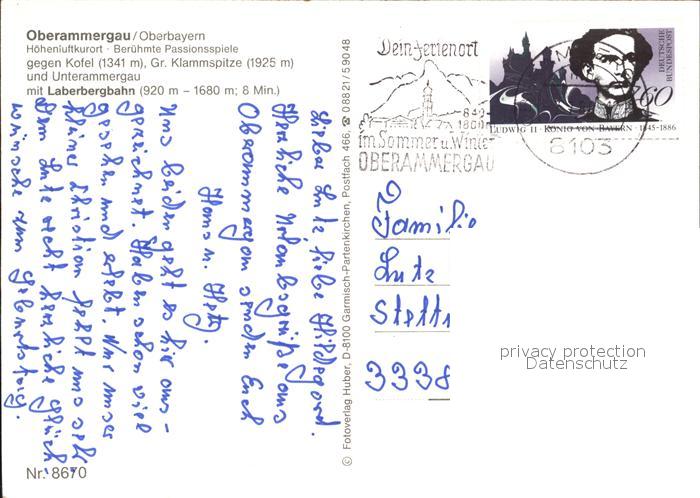 Oberammergau/Oberbayern
Höhenluftkurort · Berühmte Passionsspiele
gegen Kofel (1341 m), Gr. Klammspitze (1925 m)
und Unterammergau
mit Laberbergbahn (920 m – 1680 m; 8 Min.)
Lieber Lutz liebe Hildegard.
Herzliche Urlaubsgrüße aus
Oberammergau senden Euch
Hans u. Hety.
Uns beiden geht es hier aus-
gezeichnet. Haben schon viel
gesehen und erlebt. Nur unser
kleiner Christian fehlt uns sehr
Dem Lutz recht herzliche Glück-
wünsche zum Geburtstag.
Nr. 8670
© Fotoverlag Huber, D-8100 Garmisch-Partenkirchen, Postfach 466, ☎ 08821/59048
Dein Ferienort
840-
1800m
im Sommer u. Winter
OBERAMMERGAU
DEUTSCHE
BUNDESPOST
60
LUDWIG II · KÖNIG VON BAYERN · 1845-1886
8103
Familie
Lutz
Stett
3338
privacy protection
Datenschutz